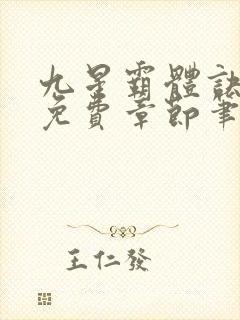 九星霸體訣
免費章節筆
王仁發